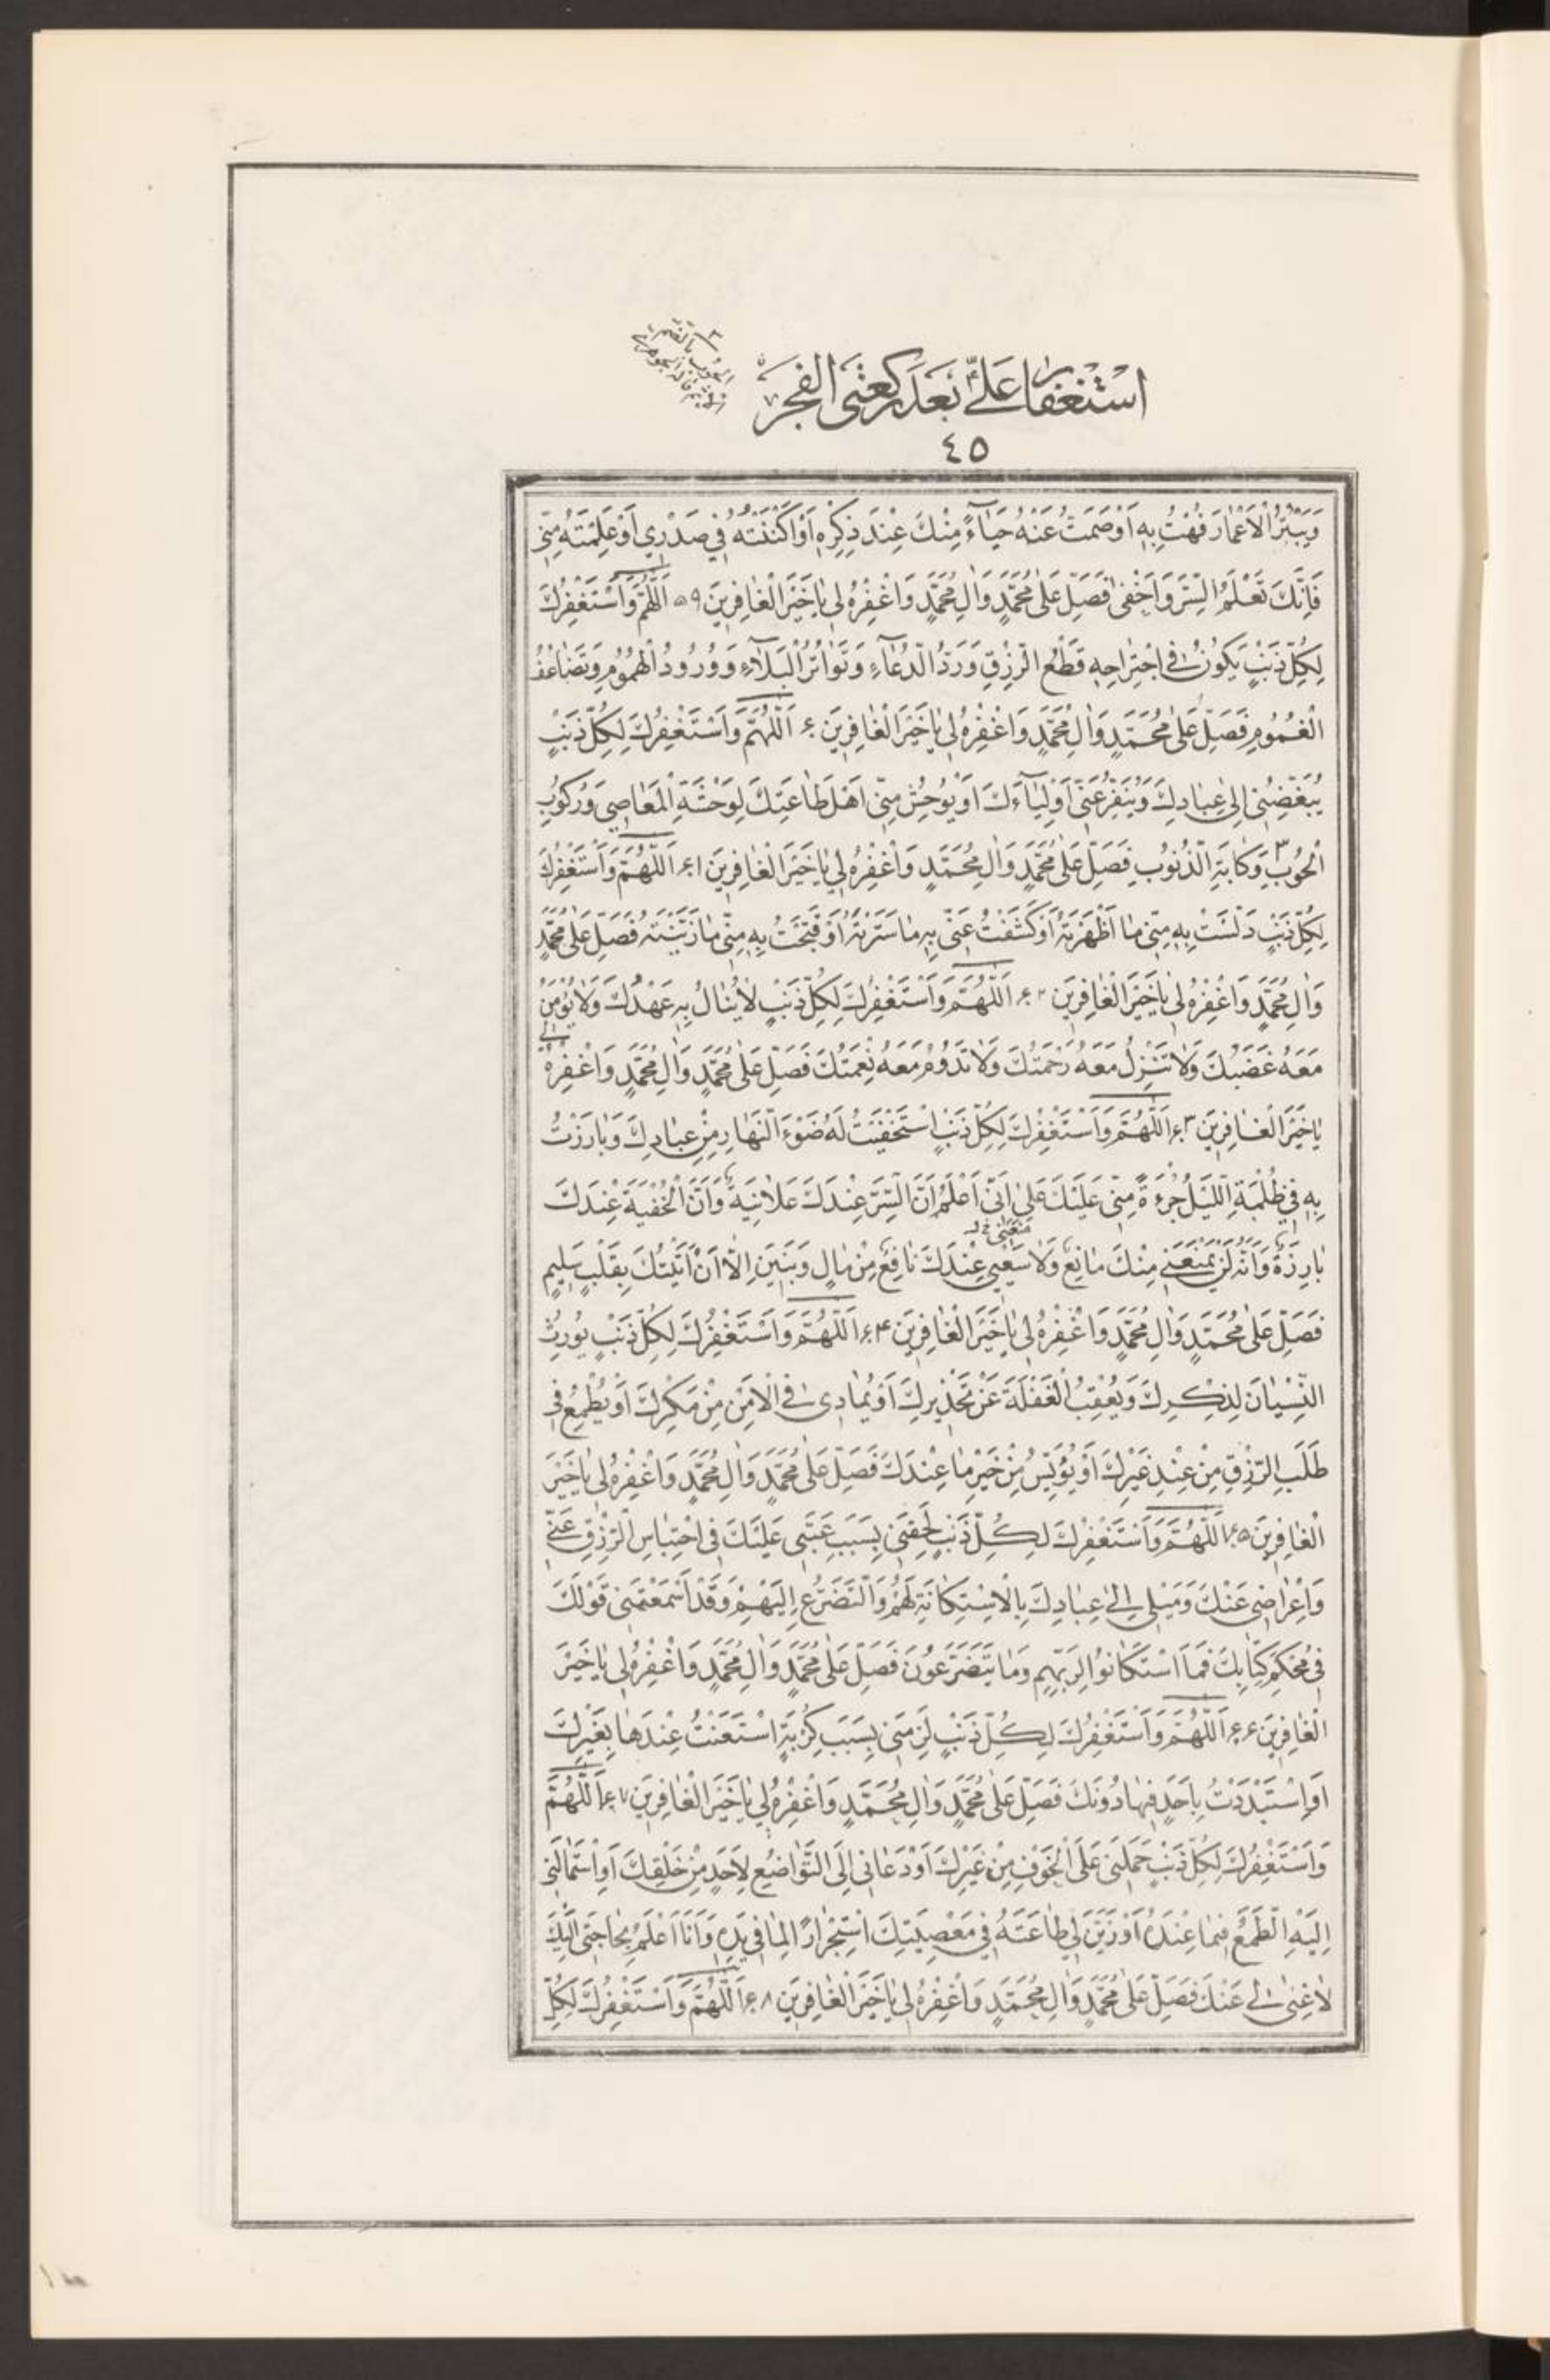 استغفار علي بعد ركعتي الفجر
٤٥
وَيَبْتُرُ الْأَعْمَارَ فُهْتُ بِهِ أَوْ صَمَتُّ عَنْهُ حَيَاءً مِنْكَ عِنْدَ ذِكْرِهِ أَوْ أَكْنَنْتُهُ فِي صَدْرِي أَوْ عَلِمْتَهُ مِنِّي
فَإِنَّكَ تَعْلَمُ السِّرَّ وَأَخْفَىٰ فَصَلِّ عَلَىٰ مُحَمَّدٍ وَآلِ مُحَمَّدٍ وَاغْفِرْهُ لِي يَا خَيْرَ الْغَافِرِينَ ۵۹ اَللَّهُمَّ وَأَسْتَغْفِرُكَ
لِكُلِّ ذَنْبٍ يَكُونُ فِي اجْتِرَاحِهِ قَطْعُ الرِّزْقِ وَرَدُّ الدُّعَاءِ وَتَوَاتُرُ الْبَلَاءِ وَوُرُودُ الْهُمُومِ وَتَضَاعُفُ
الْغُمُومِ فَصَلِّ عَلَىٰ مُحَمَّدٍ وَآلِ مُحَمَّدٍ وَاغْفِرْهُ لِي يَا خَيْرَ الْغَافِرِينَ ۶۰ اَللَّهُمَّ وَأَسْتَغْفِرُكَ لِكُلِّ ذَنْبٍ
يُبَغِّضُنِي إِلَىٰ عِبَادِكَ وَيُنَفِّرُ عَنِّي أَوْلِيَاءَكَ أَوْ يُوحِشُ مِنِّي أَهْلَ طَاعَتِكَ لِوَحْشَةِ الْمَعَاصِي وَرُكُوبِ
الْحُوبِ ٣ وَكَابَةِ الذُّنُوبِ فَصَلِّ عَلَىٰ مُحَمَّدٍ وَآلِ مُحَمَّدٍ وَاغْفِرْهُ لِي يَا خَيْرَ الْغَافِرِينَ ۶۱ اَللَّهُمَّ وَأَسْتَغْفِرُكَ
لِكُلِّ ذَنْبٍ دَلَّسْتُ بِهِ مِنِّي مَا أَظْهَرْتَهُ أَوْ كَشَفْتُ عَنِّي بِهِ مَا سَتَرْتَهُ أَوْ قَبَّحْتُ بِهِ مِنِّي مَا زَيَّنْتَهُ فَصَلِّ عَلَىٰ مُحَمَّدٍ
وَآلِ مُحَمَّدٍ وَاغْفِرْهُ لِي يَا خَيْرَ الْغَافِرِينَ ۶۲ اَللَّهُمَّ وَأَسْتَغْفِرُكَ لِكُلِّ ذَنْبٍ لَا يُنَالُ بِهِ عَهْدُكَ وَلَا يُؤْمَنُ
مَعَهُ غَضَبُكَ وَلَا تَنْزِلُ مَعَهُ رَحْمَتُكَ وَلَا تَدُومُ مَعَهُ نِعْمَتُكَ فَصَلِّ عَلَىٰ مُحَمَّدٍ وَآلِ مُحَمَّدٍ وَاغْفِرْهُ لِي
يَا خَيْرَ الْغَافِرِينَ ۶۳ اَللَّهُمَّ وَأَسْتَغْفِرُكَ لِكُلِّ ذَنْبٍ اسْتَخْفَيْتُ لَهُ ضَوْءَ النَّهَارِ مِنْ عِبَادِكَ وَبَارَزْتُ
بِهِ فِي ظُلْمَةِ اللَّيْلِ جُرْءَةً مِنِّي عَلَيْكَ عَلَىٰ أَنِّي أَعْلَمُ أَنَّ السِّرَّ عِنْدَكَ عَلَانِيَةٌ وَأَنَّ الْخُفْيَةَ عِنْدَكَ
بَارِزَةٌ وَأَنَّهُ لَنْ يَمْنَعَنِي مِنْكَ مَانِعٌ وَلَا سَعْيِي عِنْدَكَ نَافِعٌ مِنْ مَالٍ وَبَنِينَ إِلَّا أَنْ أَتَيْتُكَ بِقَلْبٍ سَلِيمٍ
فَصَلِّ عَلَىٰ مُحَمَّدٍ وَآلِ مُحَمَّدٍ وَاغْفِرْهُ لِي يَا خَيْرَ الْغَافِرِينَ ۶۴ اَللَّهُمَّ وَأَسْتَغْفِرُكَ لِكُلِّ ذَنْبٍ يُورِثُ
النِّسْيَانَ لِذِكْرِكَ وَيُعْقِبُ الْغَفْلَةَ عَنْ تَحْذِيرِكَ أَوْ يُمَادِي فِي الْأَمْنِ مِنْ مَكْرِكَ أَوْ يُطْمِعُ فِي
طَلَبِ الرِّزْقِ مِنْ عِنْدِ غَيْرِكَ أَوْ يُؤْيِسُ مِنْ خَيْرِ مَا عِنْدَكَ فَصَلِّ عَلَىٰ مُحَمَّدٍ وَآلِ مُحَمَّدٍ وَاغْفِرْهُ لِي يَا خَيْرَ
الْغَافِرِينَ ۶۵ اَللَّهُمَّ وَأَسْتَغْفِرُكَ لِكُلِّ ذَنْبٍ لَحِقَنِي بِسَبَبِ عَتْبِي عَلَيْكَ فِي احْتِبَاسِ الرِّزْقِ عَنِّي
وَإِعْرَاضِي عَنْكَ وَمَيْلِي إِلَىٰ عِبَادِكَ بِالْاِسْتِكَانَةِ لَهُمْ وَالتَّضَرُّعِ إِلَيْهِمْ وَقَدْ أَسْمَعْتَنِي قَوْلَكَ
فِي مُحْكَمِ كِتَابِكَ فَمَا اسْتَكَانُوا لِرَبِّهِمْ وَمَا يَتَضَرَّعُونَ فَصَلِّ عَلَىٰ مُحَمَّدٍ وَآلِ مُحَمَّدٍ وَاغْفِرْهُ لِي يَا خَيْرَ
الْغَافِرِينَ ۶۶ اَللَّهُمَّ وَأَسْتَغْفِرُكَ لِكُلِّ ذَنْبٍ لَزِمَنِي بِسَبَبِ كُرْبَةٍ اسْتَعَنْتُ عِنْدَهَا بِغَيْرِكَ
أَوِ اسْتَبْدَدْتُ بِأَحَدٍ فِيهَا دُونَكَ فَصَلِّ عَلَىٰ مُحَمَّدٍ وَآلِ مُحَمَّدٍ وَاغْفِرْهُ لِي يَا خَيْرَ الْغَافِرِينَ ۶۷ اَللَّهُمَّ
وَأَسْتَغْفِرُكَ لِكُلِّ ذَنْبٍ حَمَلَنِي عَلَى الْخَوْفِ مِنْ غَيْرِكَ أَوْ دَعَانِي إِلَى التَّوَاضُعِ لِأَحَدٍ مِنْ خَلْقِكَ أَوِ اسْتَمَالَنِي
إِلَيْهِ الطَّمَعُ فِيمَا عِنْدَهُ أَوْ زَيَّنَ لِي طَاعَتَهُ فِي مَعْصِيَتِكَ اسْتِجْرَارًا لِمَا فِي يَدِهِ وَأَنَا أَعْلَمُ بِحَاجَتِي إِلَيْكَ
لَا غِنَىٰ لِي عَنْكَ فَصَلِّ عَلَىٰ مُحَمَّدٍ وَآلِ مُحَمَّدٍ وَاغْفِرْهُ لِي يَا خَيْرَ الْغَافِرِينَ ۶۸ اَللَّهُمَّ وَأَسْتَغْفِرُكَ لِكُلِّ